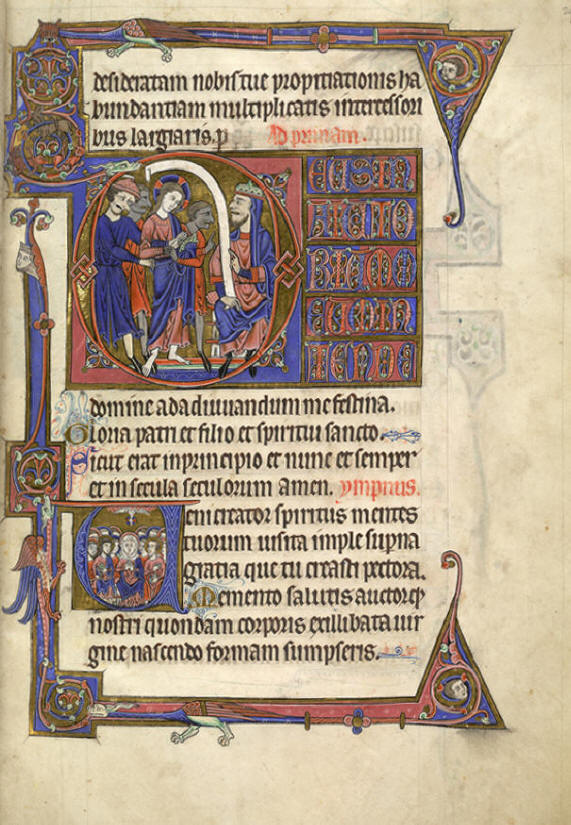 desideratam nobis tue propitiationis ha
bundantiam multiplicatis intercessori
bus largiaris. p Ad primam.
DEUS IN
ADIUTO
RIUM ME
UM IN
TENDE
domine ad adiuuandum me festina.
Gloria patri et filio et spiritui sancto.
Sicut erat in principio et nunc et semper
et in secula seculorum amen. ympnus.
Ueni creator spiritus mentes
tuorum uisita imple supna
gratia que tu creasti pectora.
Memento salutis auctor
nostri quondam corporis ex illibata uir
gine nascendo formam sumpseris.